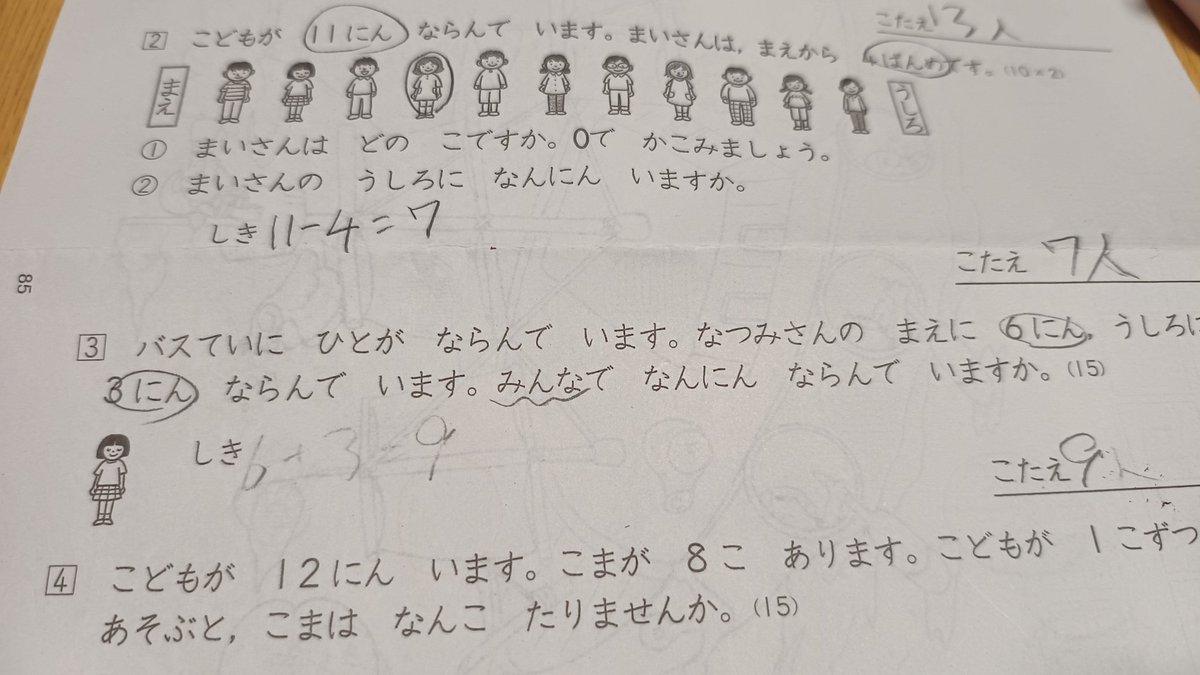 こたえ13人
2 こどもが 11にん ならんで います。まいさんは，まえから 4ばんめです。(10×2)
まえ
うしろ
① まいさんは どの こですか。0で かこみましょう。
② まいさんの うしろに なんにん いますか。
しき11-4=7
こたえ 7人
85
3 バスていに ひとが ならんで います。なつみさんの まえに 6にん，うしろに
3にん ならんで います。みんなで なんにん ならんで いますか。(15)
しき6+3=9
こたえ9人
4 こどもが 12にん います。こまが 8こ あります。こどもが 1こずつ
あそぶと，こまは なんこ たりませんか。(15)